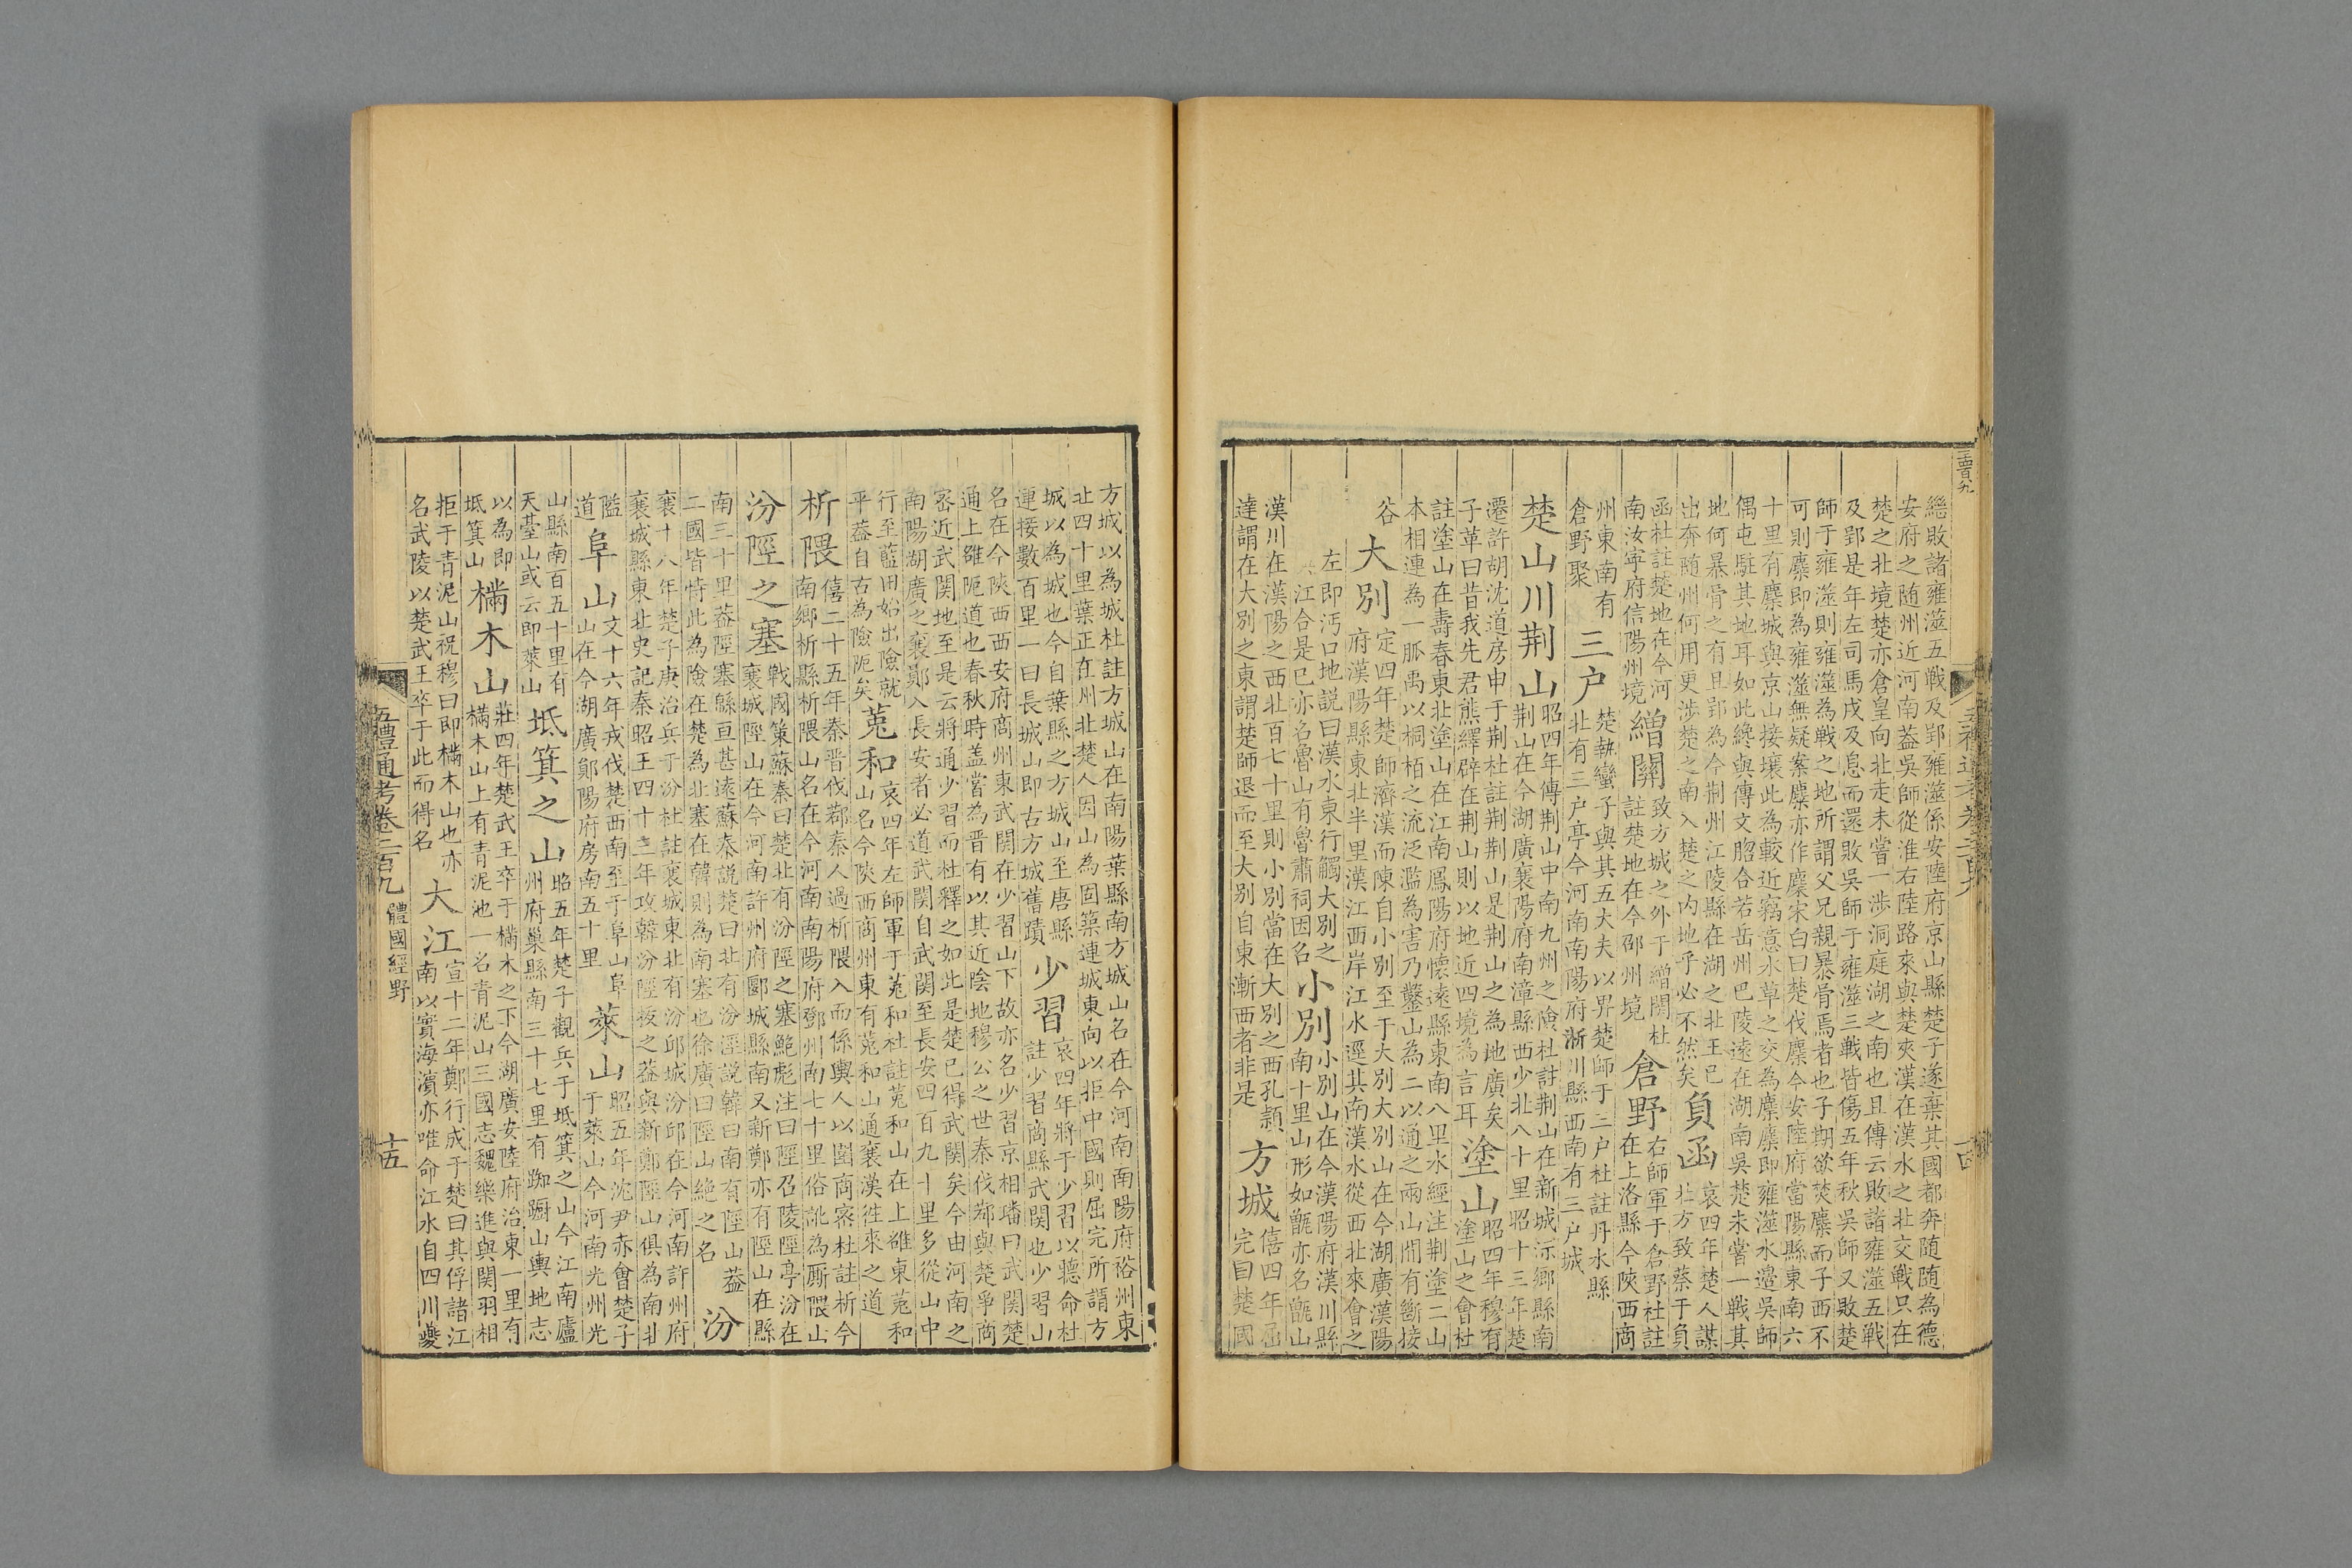 總敗諸雍澨五戰及郢雍澨係安陸府京山縣楚子遂棄其國都奔随随為德
安府之随州近河南葢吳師從淮右陸路來與楚夾漢在漢水之北交戰只在
楚之北境楚亦倉皇向北走未嘗一涉洞庭湖之南也且傳云敗諸雍澨五戰
及郢是年左司馬戌及息而還敗吳師于雍澨三戰皆傷五年秋吳師又敗楚
師于雍澨則雍澨為戰之地所謂父兄親暴骨焉者也子期欲焚麇而子西不
可則麇即為雍澨無疑案麇亦作麋宋白曰楚伐麇今安陸府當陽縣東南六
十里有麇城與京山接壤此為較近竊意水草之交為麋麋即雍澨水邊吳師
偶屯駐其地耳如此纔與傳文脗合若岳州巴陵遠在湖南吳楚未嘗一戰其
地何暴骨之有且郢為今荆州江陵縣在湖之北王已
出奔随州何用更涉楚之南入楚之内地乎必不然矣
負函
哀四年楚人謀
北方致蔡于負
函杜註楚地在今河
南汝寧府信陽州境
繒關
致方城之外于繒関杜
註楚地在今鄧州境
倉野
右師軍于倉野杜註
在上洛縣今陜西商
州東南有
倉野聚
三户
楚執蠻子與其五大夫以畀楚師于三户杜註丹水縣
北有三户亭今河南南陽府淅川縣西南有三户城
楚山川荆山
昭四年傳荆山中南九州之險杜註荆山在新城沶鄉縣南
荆山在今湖廣襄陽府南漳縣西少北八十里昭十三年楚
遷許胡沈道房申于荆杜註荆荆山是荆山之為地廣矣
子革曰昔我先君熊繹辟在荆山則以地近四境為言耳
塗山
昭四年穆有
塗山之會杜
註塗山在壽春東北塗山在江南鳳陽府懷遠縣東南八里水經注荆塗二山
本相連為一脈禹以桐栢之流泛濫為害乃鑿山為二以通之兩山間有斷接
谷
大別
定四年楚師濟漢而陳自小别至于大别大别山在今湖廣漢陽
府漢陽縣東北半里漢江西岸江水逕其南漢水從西北來會之
左即沔口地説曰漢水東行觸大别之
江合是已亦名魯山有魯肅祠因名
小別
小别山在今漢陽府漢川縣
南十里山形如甑亦名甑山
漢川在漢陽之西北百七十里則小别當在大别之西孔頴
達謂在大别之東謂楚師退而至大别自東漸西者非是
方城
僖四年屈
完曰楚國
五禮通考卷二百九
十四
方城以為城杜註方城山在南陽葉縣南方城山名在今河南南陽府裕州東
北四十里葉正在州北楚人因山為固築連城東向以拒中國則屈完所謂方
城以為城也今自葉縣之方城山至唐縣
連接數百里一曰長城山即古方城舊蹟
少習
哀四年將于少習以聽命杜
註少習商縣武関也少習山
名在今陜西西安府商州東武関在少習山下故亦名少習京相璠曰武関楚
宻近武関地至是云將通少習而杜釋之如此是楚已得武関矣今由河南之
通上雒阨道也春秋時盖當為晉有以其近陰地穆公之世秦伐鄀與楚爭商
南陽湖廣之襄鄖入長安者必道武関自武関至長安四百九十里多從山中
行至藍田始出險就
平葢自古為險阨矣
菟和
哀四年左師軍于菟和杜註菟和山在上雒東菟和
山名今陜西商州東有菟和山通襄漢徃來之道
析隈
僖二十五年秦晋伐鄀秦人過析隈入而係輿人以圍商宻杜註析今
南鄉析縣析隈山名在今河南南陽府鄧州南七十里俗訛為厮隈山
汾陘之塞
戰國策蘇秦曰楚北有汾陘之塞鮑彪注曰陘召陵陘亭汾在
襄城陘山在今河南許州府郾城縣南又新鄭亦有陘山在縣
南三十里葢陘塞緜亘甚遠蘇秦説楚曰北有汾陘説韓曰南有陘山葢
二國皆恃此為險在楚為北塞在韓則為南塞也徐廣曰陘山絶之名
汾
襄十八年楚子庚治兵于汾杜註襄城東北有汾邱城汾邱在今河南許州府
襄城縣東北史記秦昭王四十三年攻韓汾陘㧞之葢與新鄭陘山俱為南北
隘
道
阜山
文十六年戎伐楚西南至于阜山阜
山在今湖廣鄖陽府房南五十里
萊山
昭五年沈尹赤會楚子
于萊山今河南光州光
山縣南百五十里有
天臺山或云即萊山
坻箕之山
昭五年楚子觀兵于坻箕之山今江南廬
州府巢縣南三十七里有踟蹰山輿地志
以為即
坻箕山
樠木山
莊四年楚武王卒于樠木之下今湖廣安陸府治東一里有
樠木山上有青泥池一名青泥山三國志魏樂進與関羽相
拒于青泥山祝穆曰即樠木山也亦
名武陵以楚武王卒于此而得名
大江
宣十二年鄭行成于楚曰其俘諸江
南以實海濵亦唯命江水自四川夔
五豊通考卷二百九
體國經野
十五